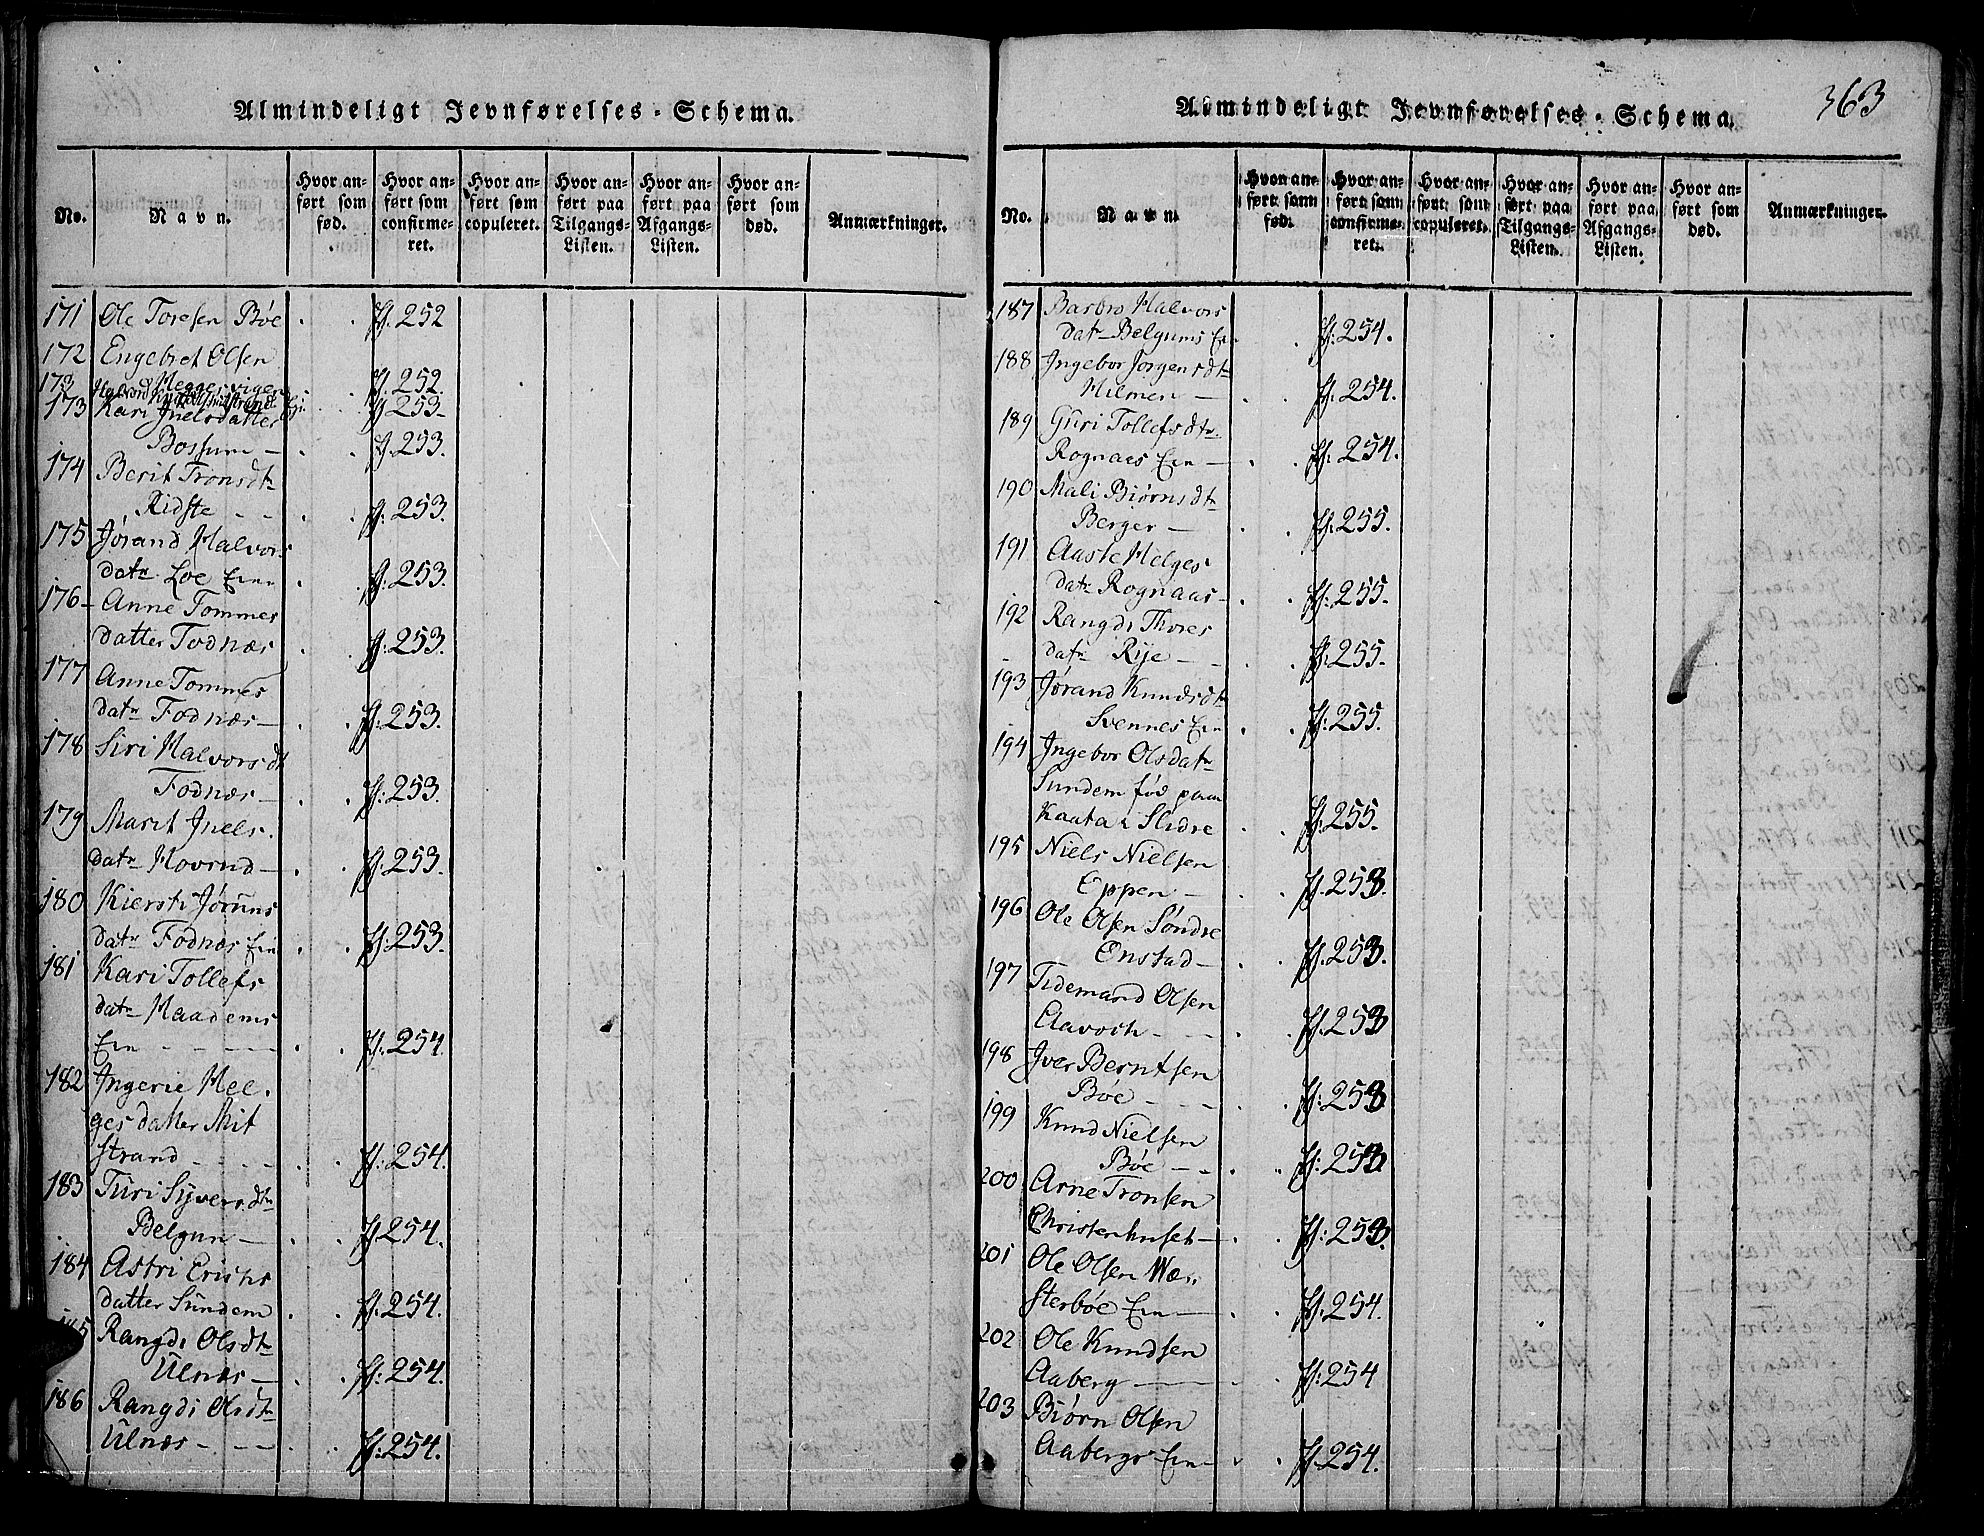 Almindeligt Jevnførelses-Schema.
No.
Navn.
Hvor an-
ført som
fød.
Hvor an-
ført som
confirme-
ret.
Hvor an-
ført som
copuleret.
Hvor an-
ført paa
Tilgangs-
Listen.
Hvor an-
ført paa
Afgangs-
Listen.
Hvor an-
ført som
død.
Anmærkninger.
171 Ole Toresen Bøe f: 252
172 Engebret Olsen
f 252
173 f 253-
173 Kari Juelsdatter
f. 253.
174 Berit Tronsdtr
Ridste - - f: 253.
175 Jørand Halvors
datr Loe Ein f: 253.
176- Anne Tommes
datter Fodnæs f: 253.
177 Anne Tommes
datr Fodnæs - f: 253.
178 Siri Halvorsdt
Fodnæs - f: 253.
179 Marit Juels.
datr Hovrud - f: 253.
180 Kiersti Jøruns
datr Fodnæs Ein f: 253.
181 Kari Tollefs
datr Haadems
Ein - - - - f: 254.
182 Ingerie Hel.
ges datter Mit
strand - - - - f: 254.
183 Turi Syversdtr
Belgun - f 254.
184 Astri Erichs
datter Sundem f: 254.
185 Rangdi Olsdtr
Ulnæs - f: 254.
186 Rangdi Olsdtr
Ulnæs - - - - f: 254.
363
Almindeligt Jevnførelses-Schema.
No.
Navn.
Hvor an-
ført som
fød.
Hvor an-
ført som
confirme-
ret.
Hvor an-
ført som
copuleret.
Hvor an-
ført paa
Tilgangs-
Listen.
Hvor an-
ført paa
Afgangs-
Listen.
Hvor an-
ført som
død.
Anmærkninger.
187 Barbro Halvors
datr Belgums Ein f: 254.
188 Ingebor Jørgensdtr
Hilmen - f: 254.
189 Guri Tollefsdtr
Rognaes Ein - f: 254.
190 Mali Biørnsdtr
Berger - f: 255.
191 Aaste Helges
datr Rognaas - f: 255.
192 Rangdi Thores
datr Rije - - f: 255.
193 Jørand Knudsdtr
Svennes Ein f: 255.
194 Ingebor Olsdatr
Sundem fød paa
Kaata i Slidre f: 255.
195 Niels Nielsen
Eppen - f: 253.
196 Ole Olsen Søndre
Enstad - f: 253.
197 Tidemand Olsen
f: 253
198 Iver Berntsen
Bøe - - - f: 253
199 Knud Nielsen
Bøe - - f: 253
200 Arne Tronsen
Christenhuset - f: 253.
201 Ole Olsen Wæ.
sterbøe Ein - f: 254
202 Ole Knudsen
Aaberg - f: 254
203 Biørn Olsen
Aabergs Ein - f: 254.